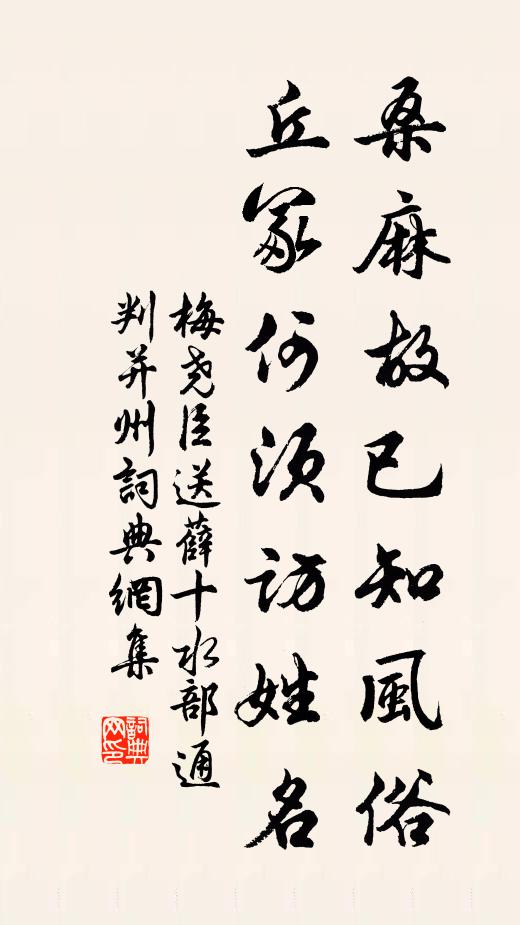 桑麻故已知風俗
丘冢何須訪姓名
梅堯臣送薛十水部通
判并州詞典網集
詞典网印